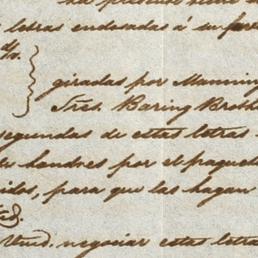 letras endosadas á su
giradas por Manning
Sres. Baring Broth
segundas de estas letras
Londres por el paquete
idos, para que las hagan
Umd. negociar estas letra